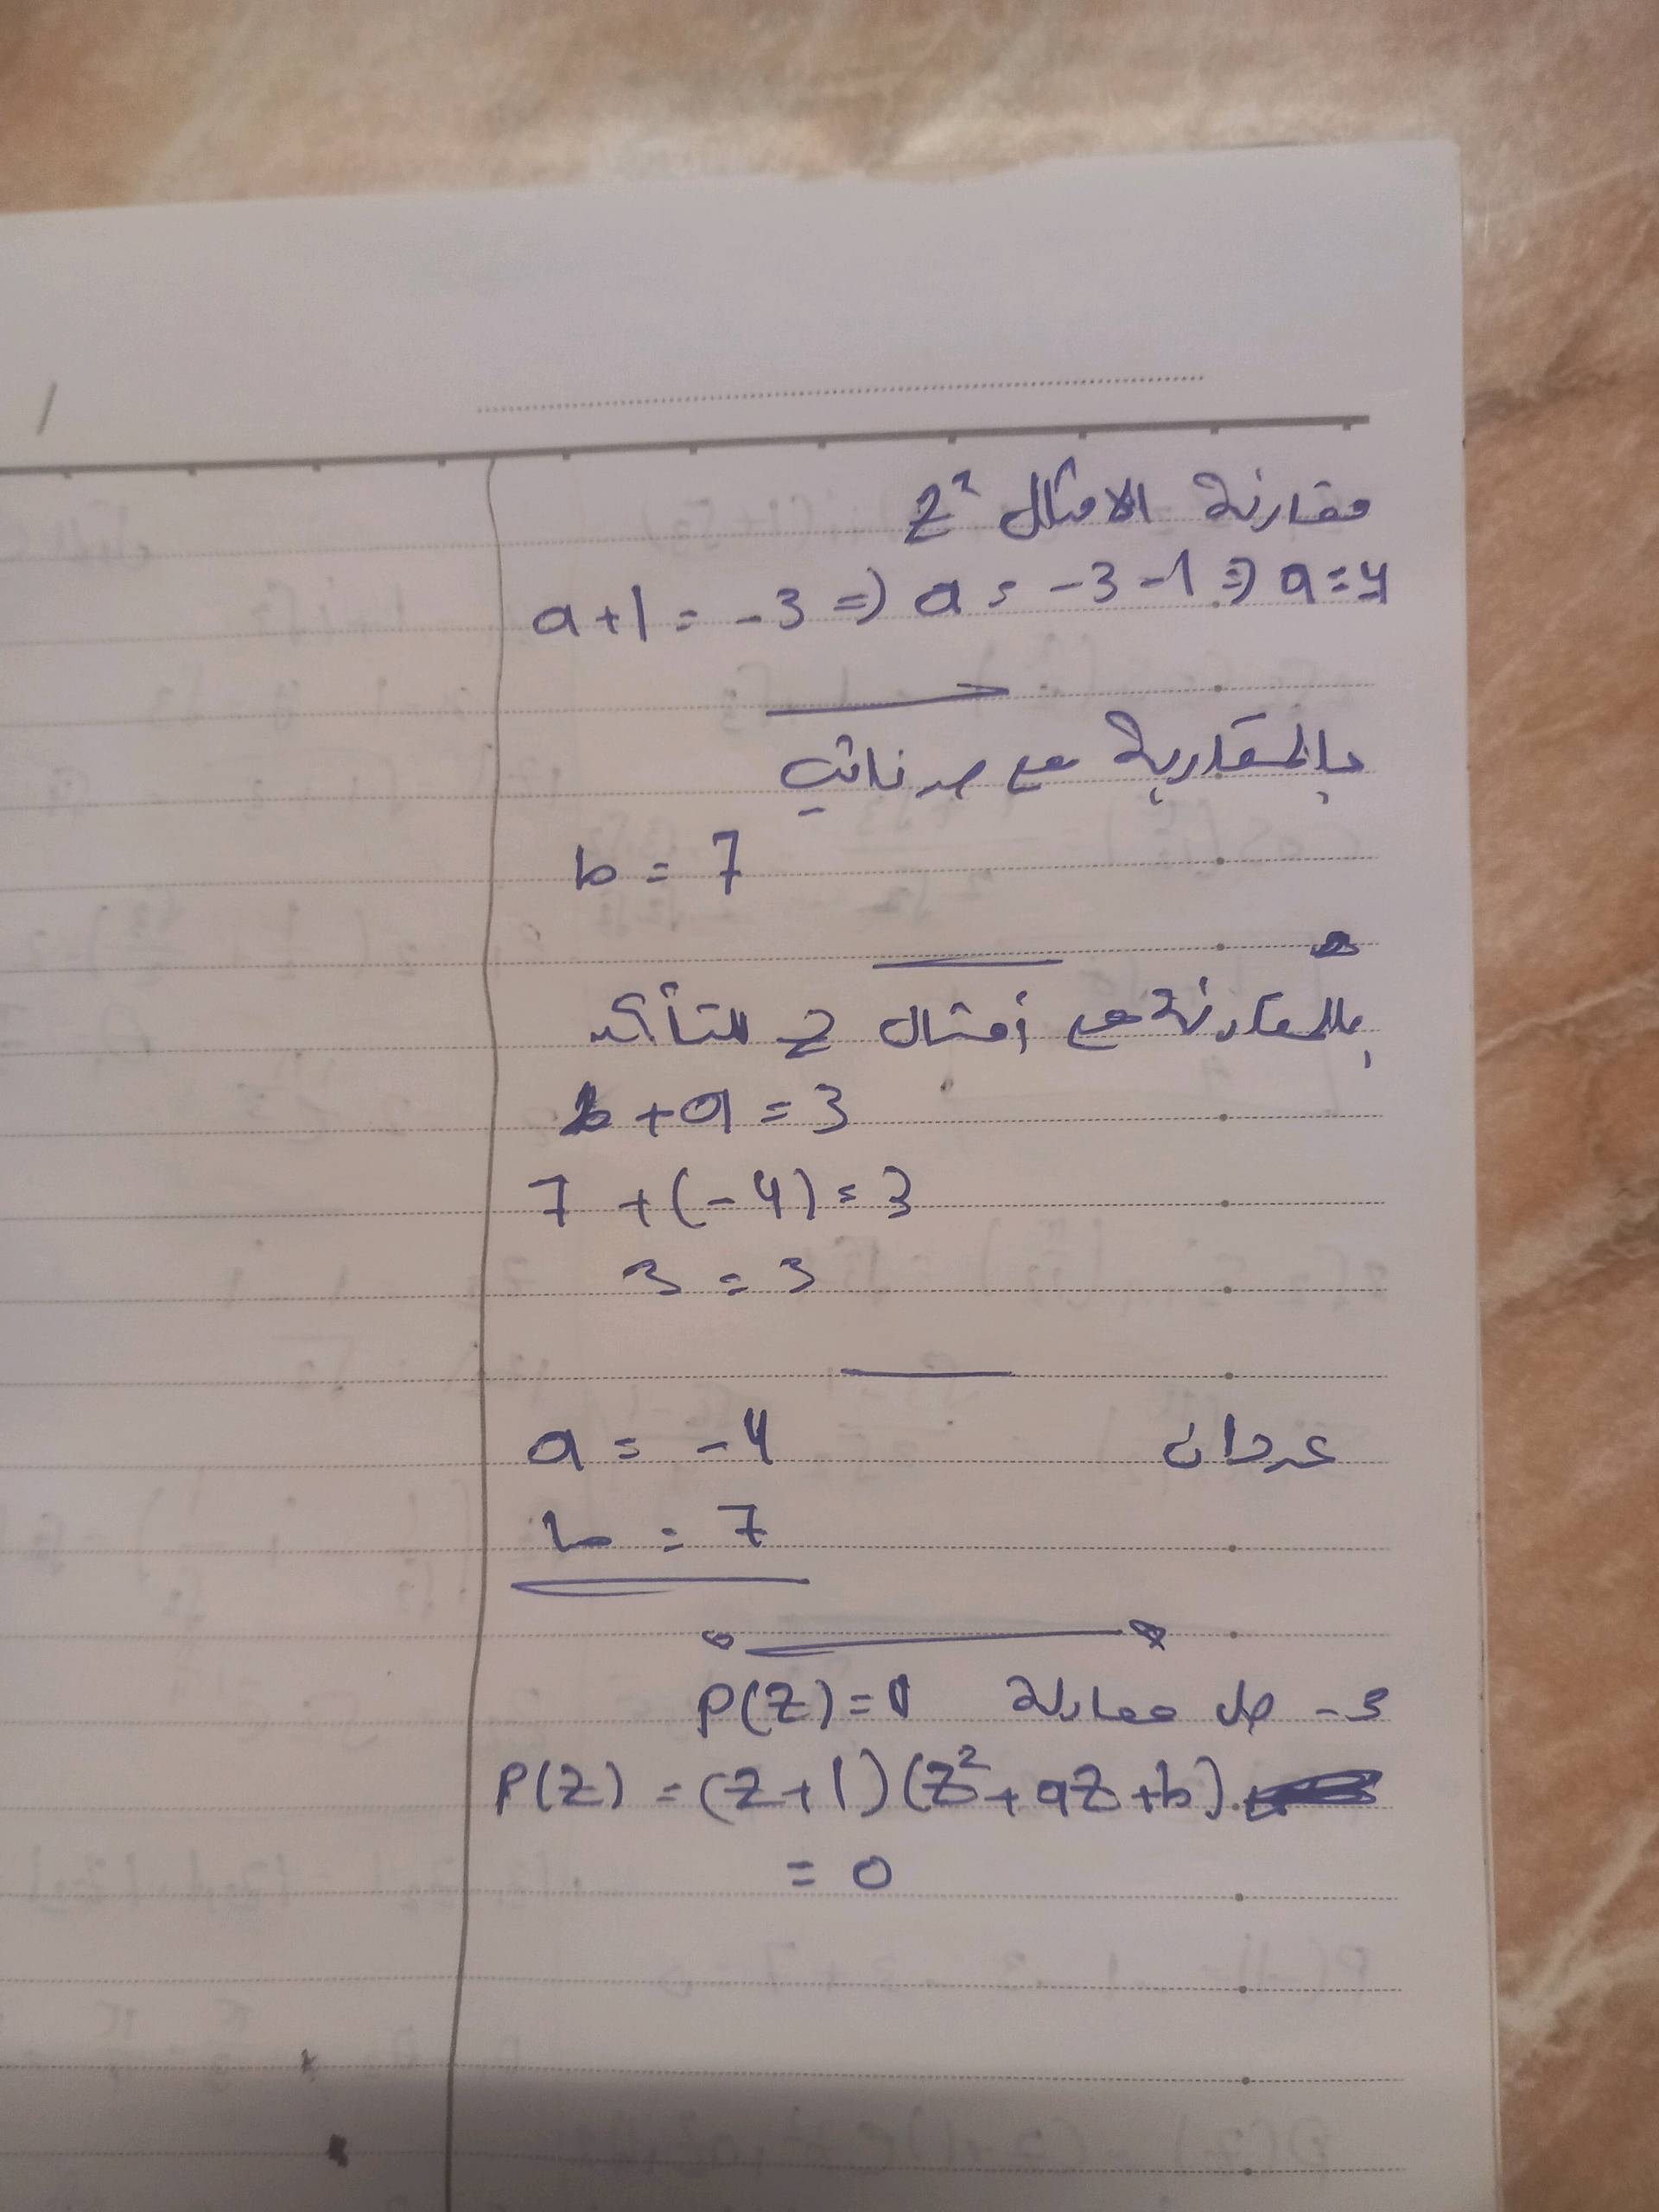 مقارنة الامثال z²
a+1 = -3 => a = -3 -1 => a = 4
بالمقاربة مع
b = 7
بالمقارنة مع أمثال z للتأكد
b + a = 3
7 + (-4) = 3
3 = 3
a = -4
b = 7
3- حل معادلة P(Z)=0
P(Z) = (Z+1)(Z²+aZ+b)
= 0